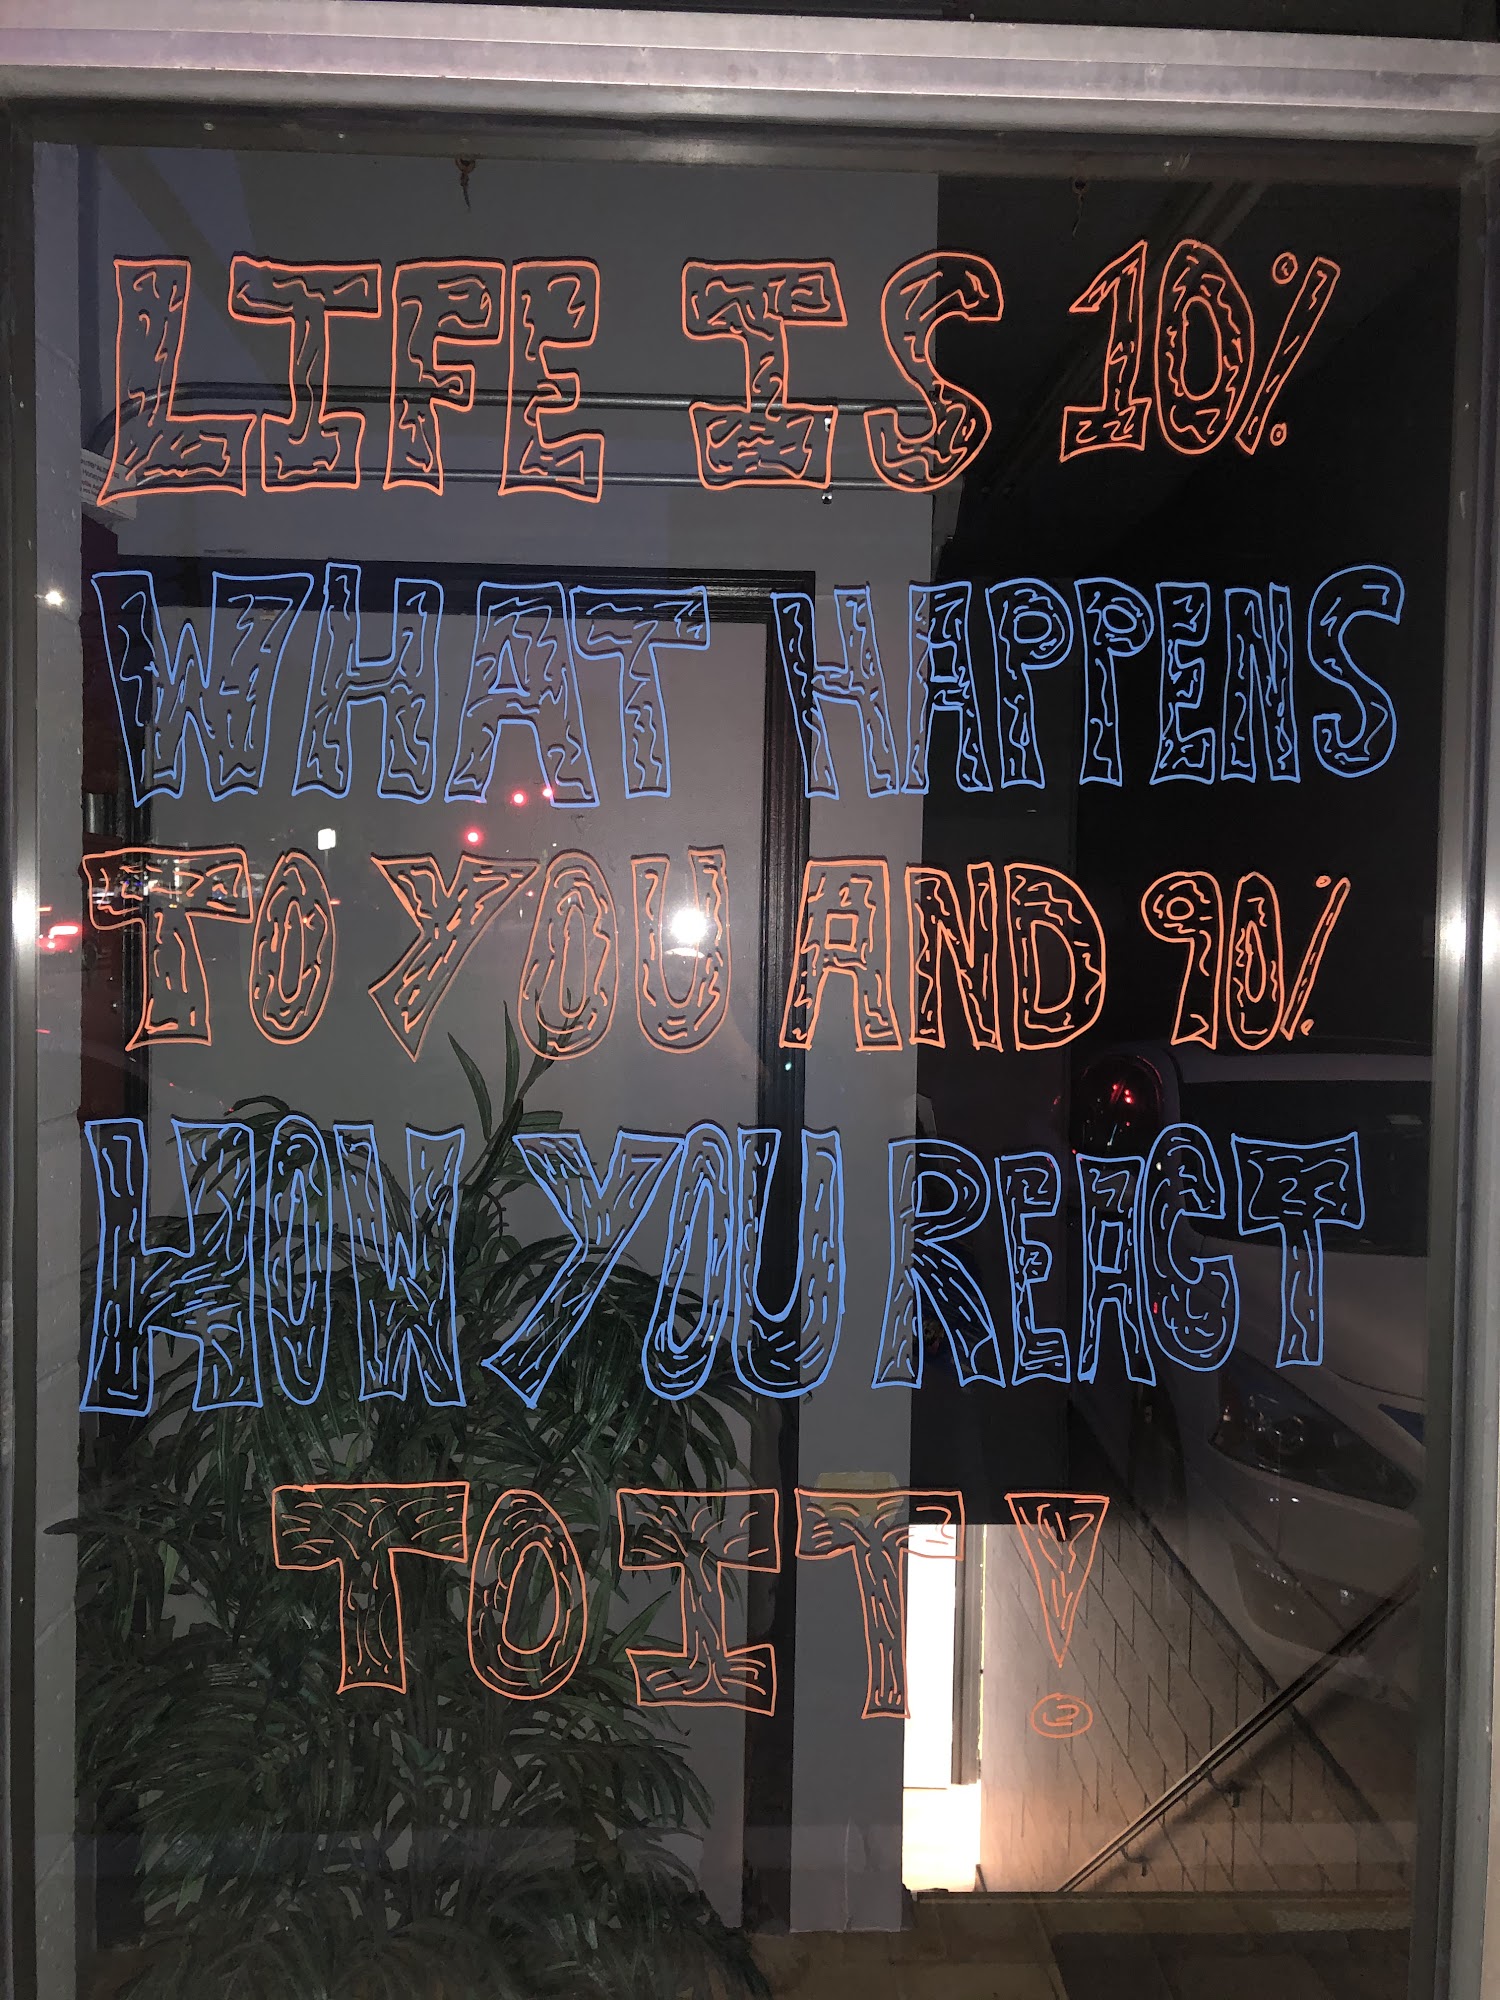 LIFE IS 10%
WHAT HAPPENS
TO YOU AND 90%
HOW YOU REACT
TO IT!